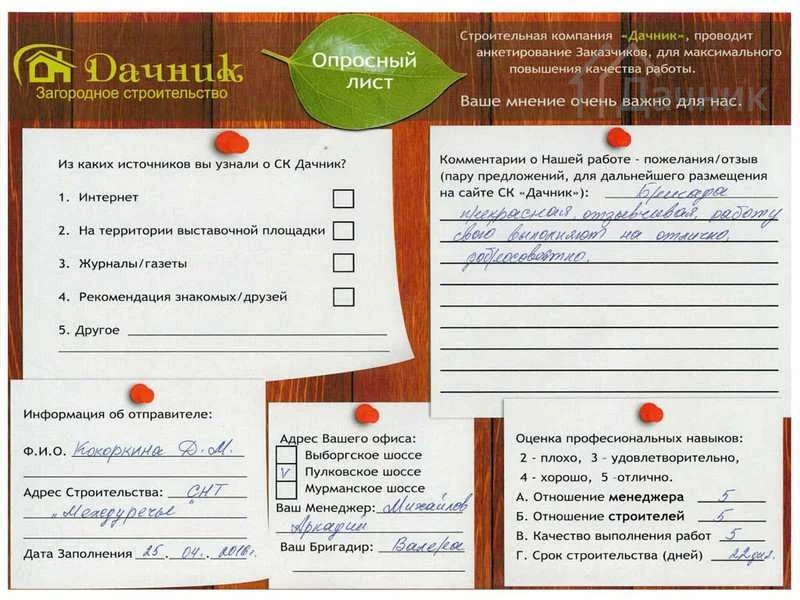 Дачник
Загородное строительство
Опросный
лист
Строительная компания «Дачник», проводит
анкетирование Заказчиков, для максимального
повышения качества работы.
Ваше мнение очень важно для нас.
Дачник
Из каких источников вы узнали о СК Дачник?
1. Интернет
2. На территории выставочной площадки
3. Журналы/газеты
4. Рекомендация знакомых/друзей
5. Другое
Комментарии о Нашей работе - пожелания/отзыв
(пару предложений, для дальнейшего размещения
на сайте СК «Дачник»): Бригада
прекрасная, отзывчивая, работу
свою выполняют на отлично,
добросовестно.
Информация об отправителе:
Ф.И.О. Кокоркина Д.М.
Адрес Строительства: СНТ
"Междуречье"
Дата Заполнения 25. 04. 2016г.
Адрес Вашего офиса:
Выборгское шоссе
V Пулковское шоссе
Мурманское шоссе
Ваш Менеджер: Михайлов
Аркадий
Ваш Бригадир: Валера
Оценка профессиональных навыков:
2 - плохо, 3 - удовлетворительно,
4 - хорошо, 5 -отлично.
А. Отношение менеджера 5
Б. Отношение строителей 5
В. Качество выполнения работ 5
Г. Срок строительства (дней) 22дня.